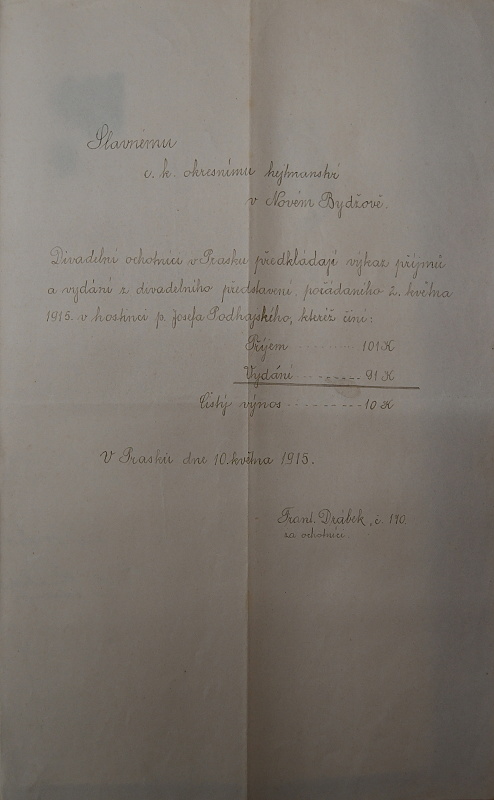 Slavnému
c. k. okresnímu hejtmanství
v Novém Bydžově.
Divadelní ochotníci v Prasku předkládají výkaz příjmů
a vydání z divadelního představení, pořádaného 2. května
1915. v hostinci p. Josefa Podhajského, kteříž činí:
Příjem ......... 101 K
Vydání ......... 91 K
Čistý výnos ......... 10 K
V Prasku dne 10. května 1915.
Frant. Drábek, č. 190
za ochotníci